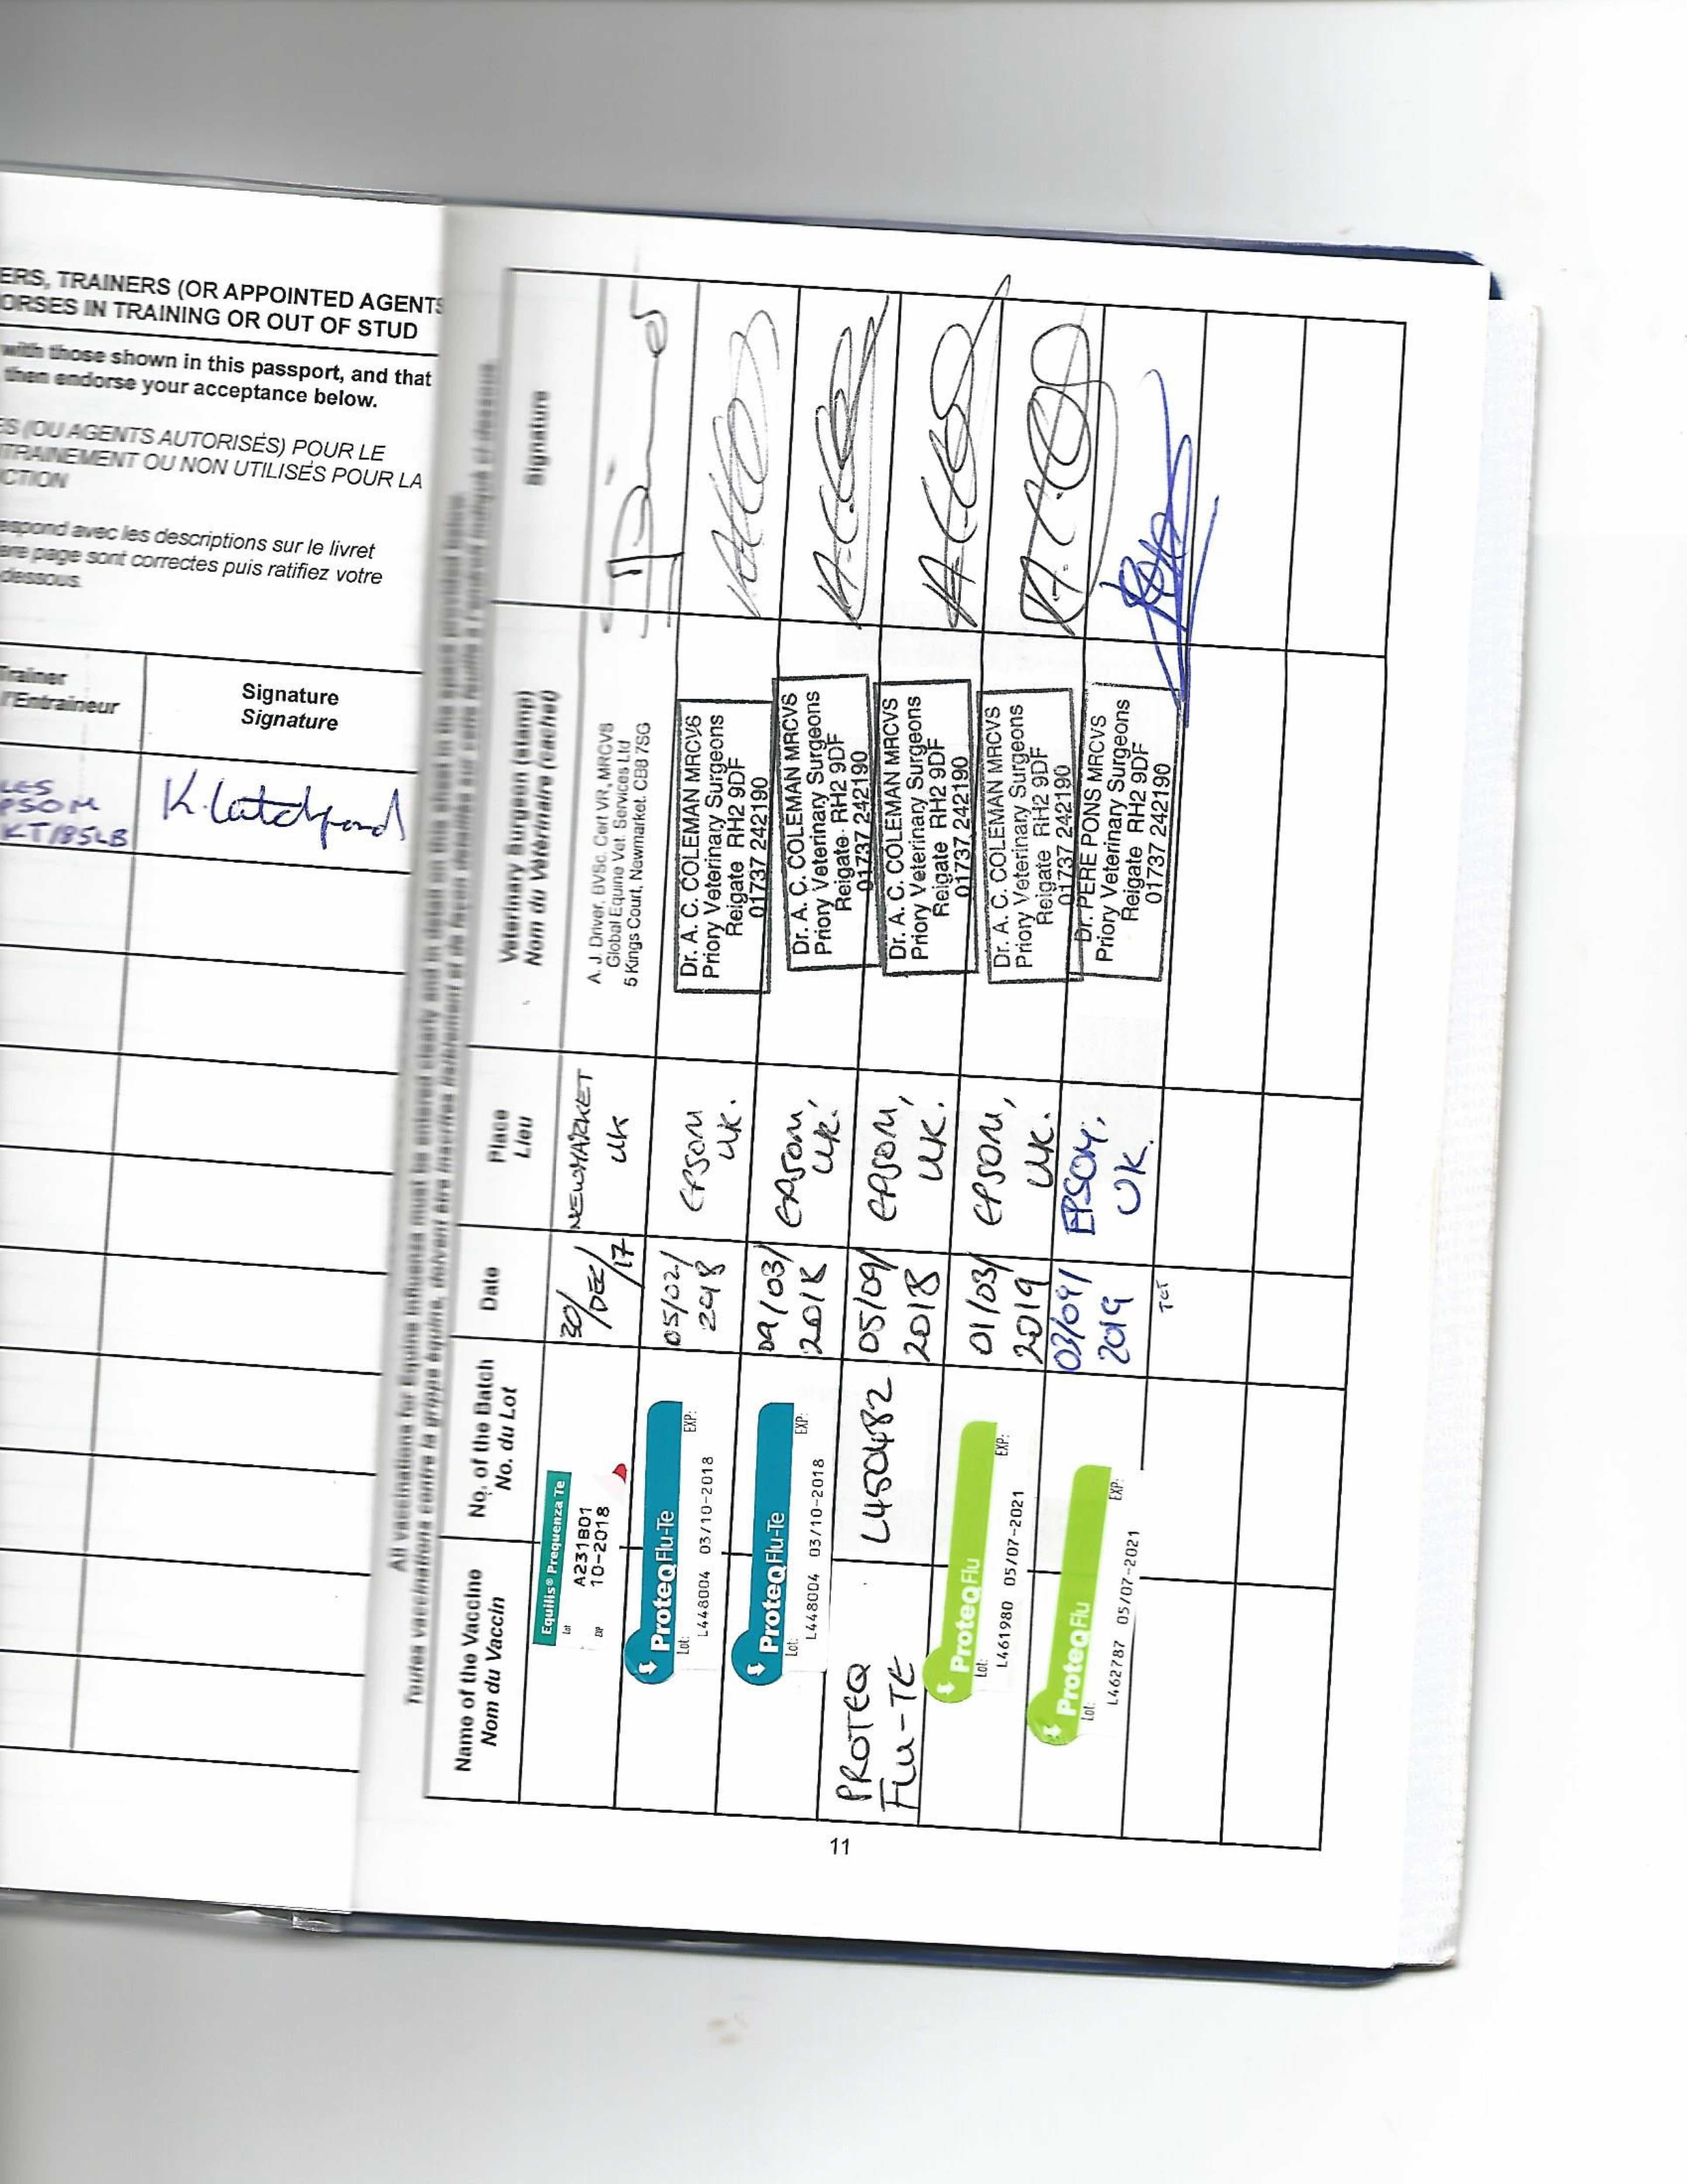 ERS, TRAINERS (OR APPOINTED AGENTS
ORSES IN TRAINING OR OUT OF STUD
with those shown in this passport, and that
then endorse your acceptance below.
ES (OU AGENTS AUTORISÉS) POUR LE
TRAINEMENT OU NON UTILISÉS POUR LA
CTION
espond avec les descriptions sur le livret
ere page sont correctes puis ratifiez votre
dessous.
Trainer
l'Entraineur
Signature
Signature
LES
PSOM
KT185LB
K. Latchford
All vaccinations for Equine Influenza must be entered clearly and in detail
Toutes vaccinations contre la grippe équine, doivent être inscrites lisiblement et de façon détaillée
Name of the Vaccine
Nom du Vaccin
No. of the Batch
No. du Lot
Date
Place
Lieu
Veterinary Surgeon (stamp)
Nom du Vétérinaire (cachet)
Signature
Equilis® Prequenza Te
Lot
A231B01
EXP
10-2018
30/
DEC/
17
NEWMARKET
UK
A. J. Driver, BVSc. Cert VR, MRCVS
Global Equine Vet. Services Ltd
5 Kings Court, Newmarket. CB8 7SG
ProteqFlu-Te
Lot:
EXP:
L448004 03/10-2018
05/02/
2018
EPSOM
UK.
Dr. A. C. COLEMAN MRCVS
Priory Veterinary Surgeons
Reigate RH2 9DF
01737 242190
ProteqFlu-Te
Lot:
EXP:
L448004 03/10-2018
09/03/
2018
EPSOM,
UK.
Dr. A. C. COLEMAN MRCVS
Priory Veterinary Surgeons
Reigate RH2 9DF
01737 242190
PROTEQ
FLU-TE
L450482
05/09/
2018
EPSOM,
UK.
Dr. A. C. COLEMAN MRCVS
Priory Veterinary Surgeons
Reigate RH2 9DF
01737 242190
ProteqFlu
Lot:
EXP:
L461980 05/07-2021
01/03/
2019
EPSOM,
UK.
Dr. A. C. COLEMAN MRCVS
Priory Veterinary Surgeons
Reigate RH2 9DF
01737 242190
ProteqFlu
Lot:
EXP:
L462787 05/07-2021
03/09/
2019
EPSOM,
UK.
Dr. PERE PONS MRCVS
Priory Veterinary Surgeons
Reigate RH2 9DF
01737 242190
11